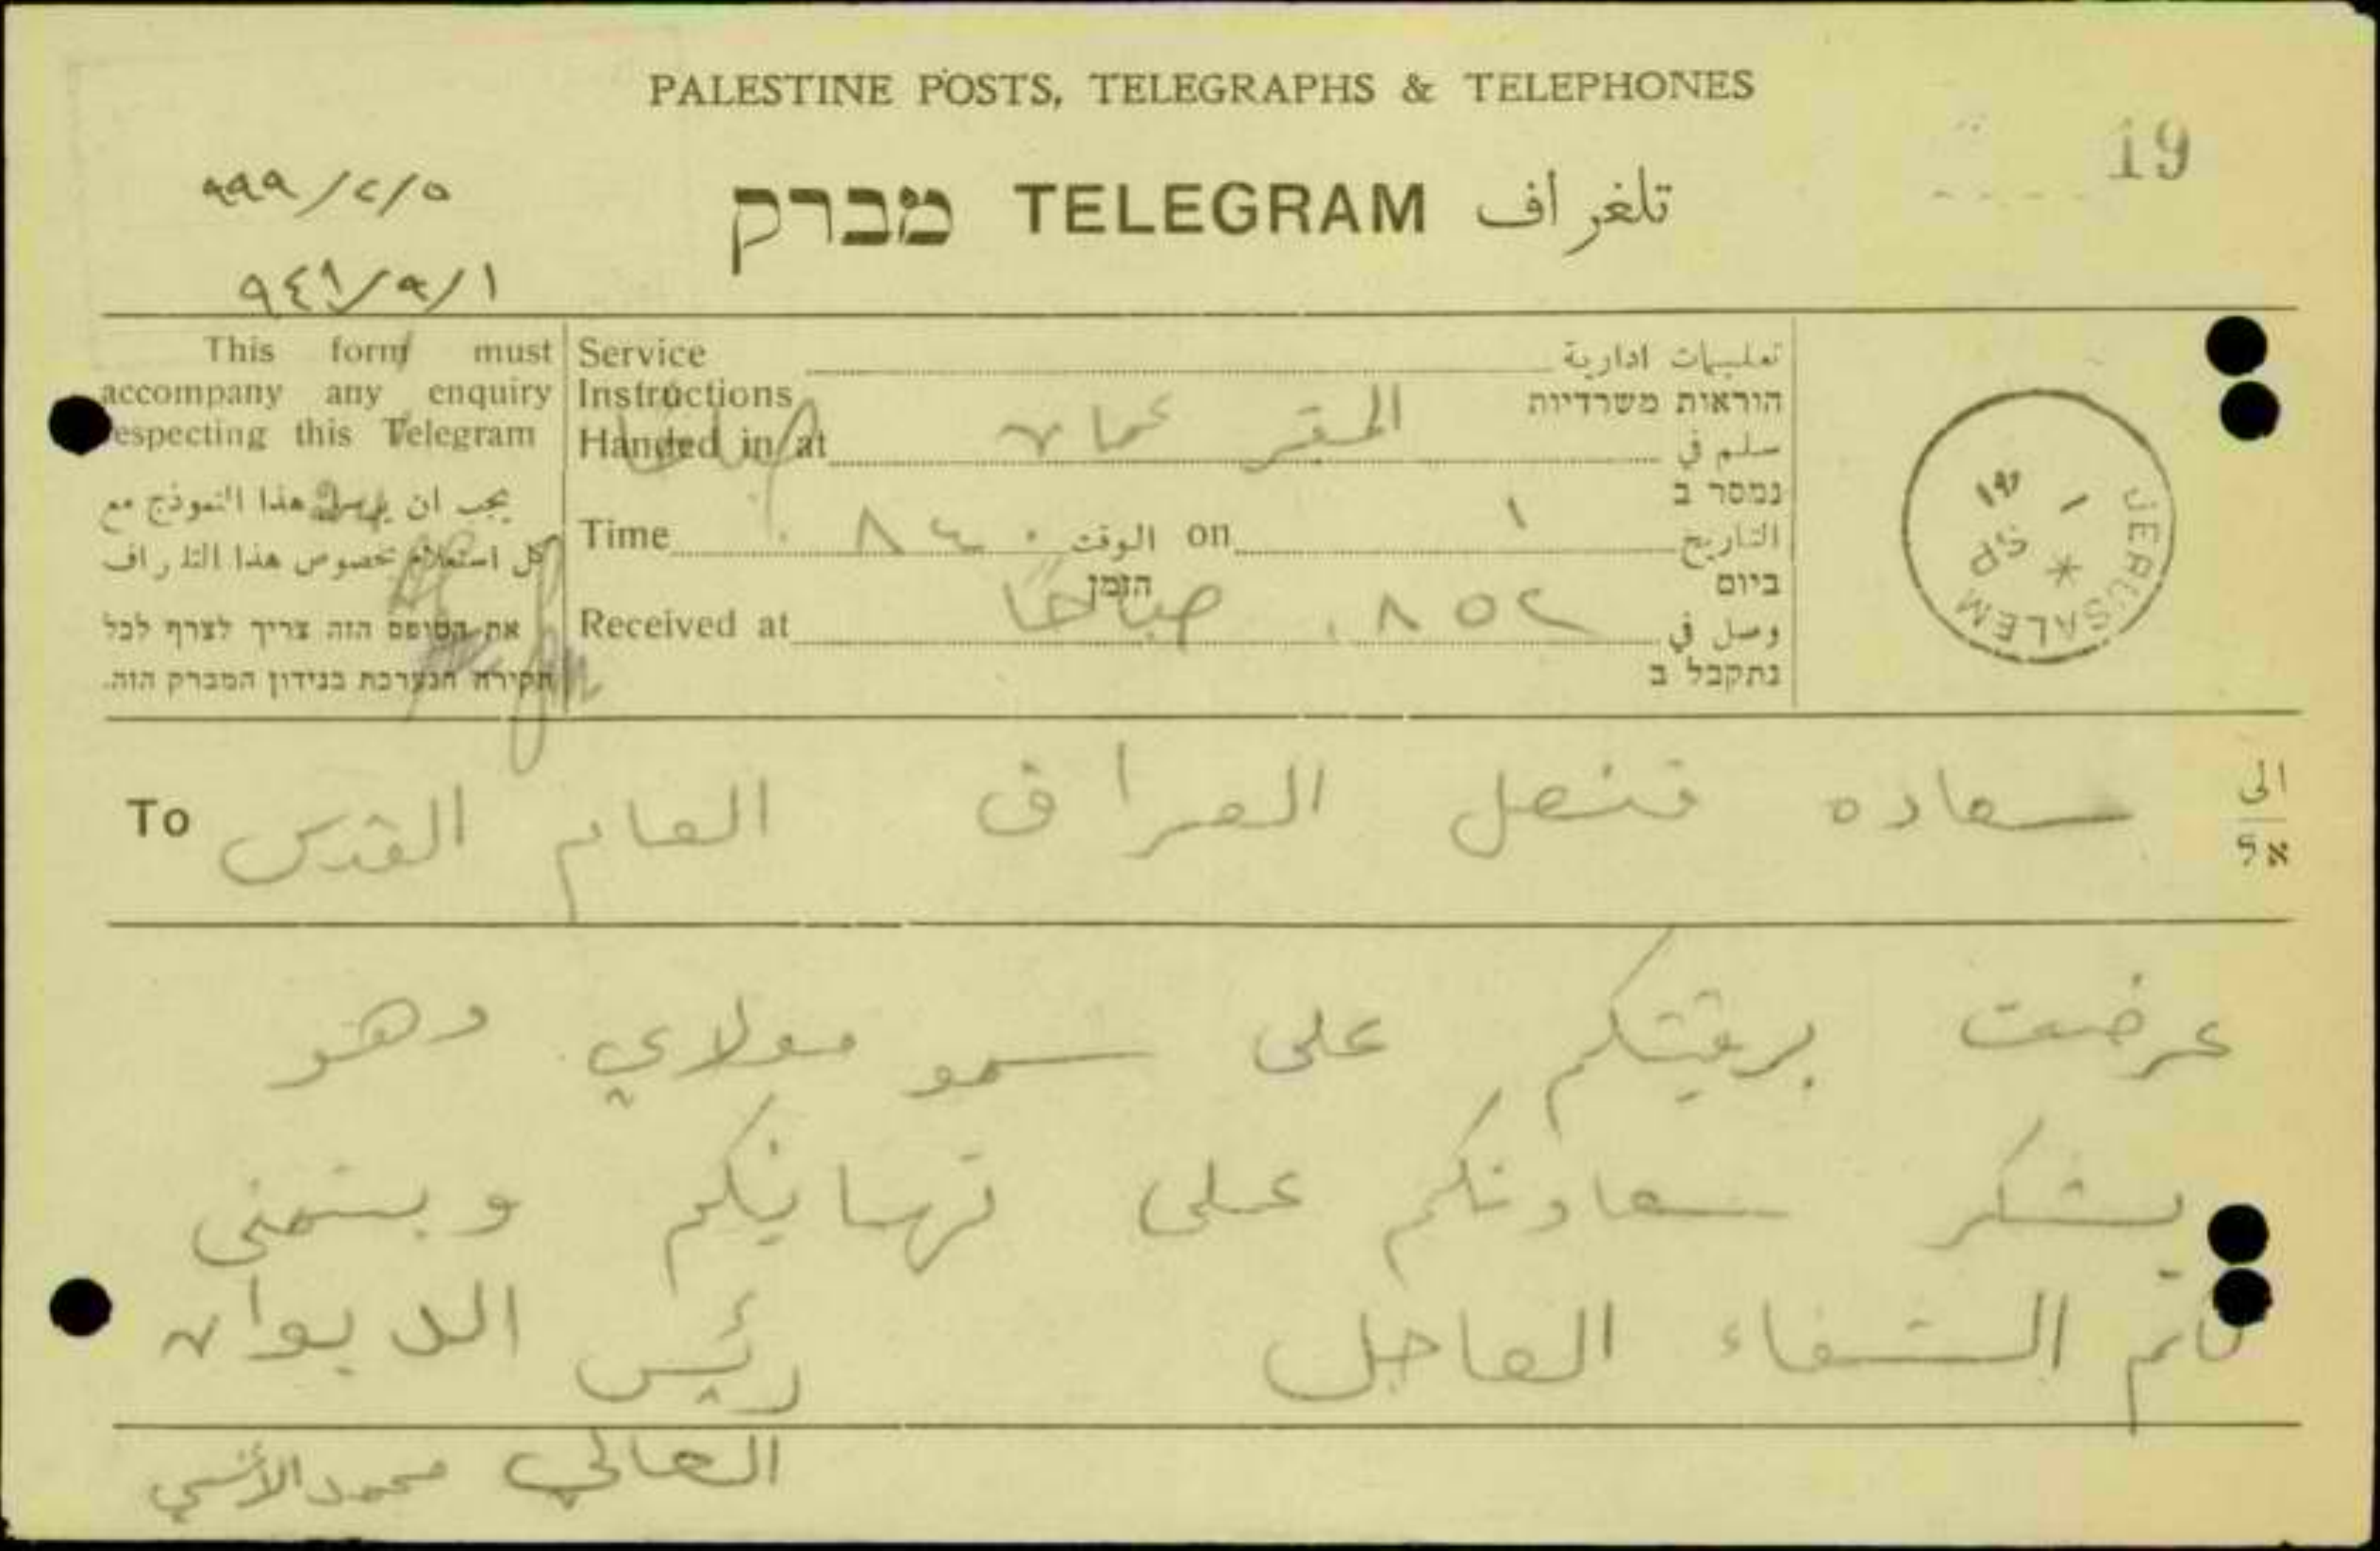 PALESTINE POSTS, TELEGRAPHS & TELEPHONES
19
מברק TELEGRAM تلغراف
٩٩٩/٢/٥
٩٤١/٩/١
This form must
accompany any enquiry
respecting this Telegram
يجب ان يرسل هذا النموذج مع
كل استعلام بخصوص هذا التلغراف
את הטופס הזה צריך לצרף לכל
חקירה הנערכת בנידון המברק הזה.
Service تعليمات ادارية
Instructions הוראות משרדיות
Handed in at المقر عمان سلم في
נמסר ב
Time ٨٤٠ الوقت on ١ التاريخ
הזמן ביום
Received at ٨٥٢ صباحًا وصل في
נתקבל ב
JERUSALEM
1 SP
To سعاده قنصل العراق العام القدس الى
אל
عرضت برقيتكم على سمو مولاي وهو
يشكر سعادتكم على تهانيكم ويتمنى
لكم الشفاء العاجل رئيس الديوان
العالي محمد الأنسي